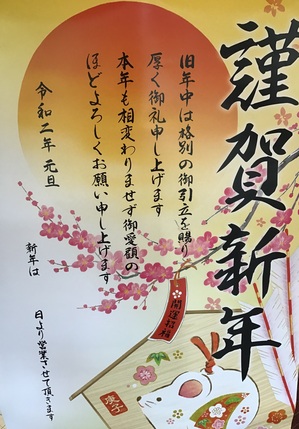 謹賀新年
旧年中は格別の御引立を賜り
厚く御礼申し上げます
本年も相変わりませず御愛顧の
ほどよろしくお願い申し上げます
令和二年 元旦
新年は
日より営業させて頂きます
開運招福
庚子